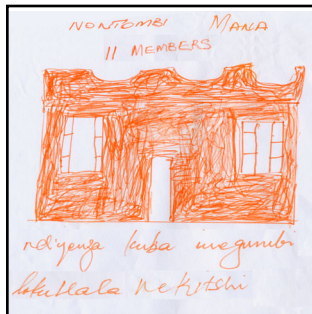 NONTOMBI MANA
11 MEMBERS
ndiyenza kuba inegumbi
lokuhlala nekitshi